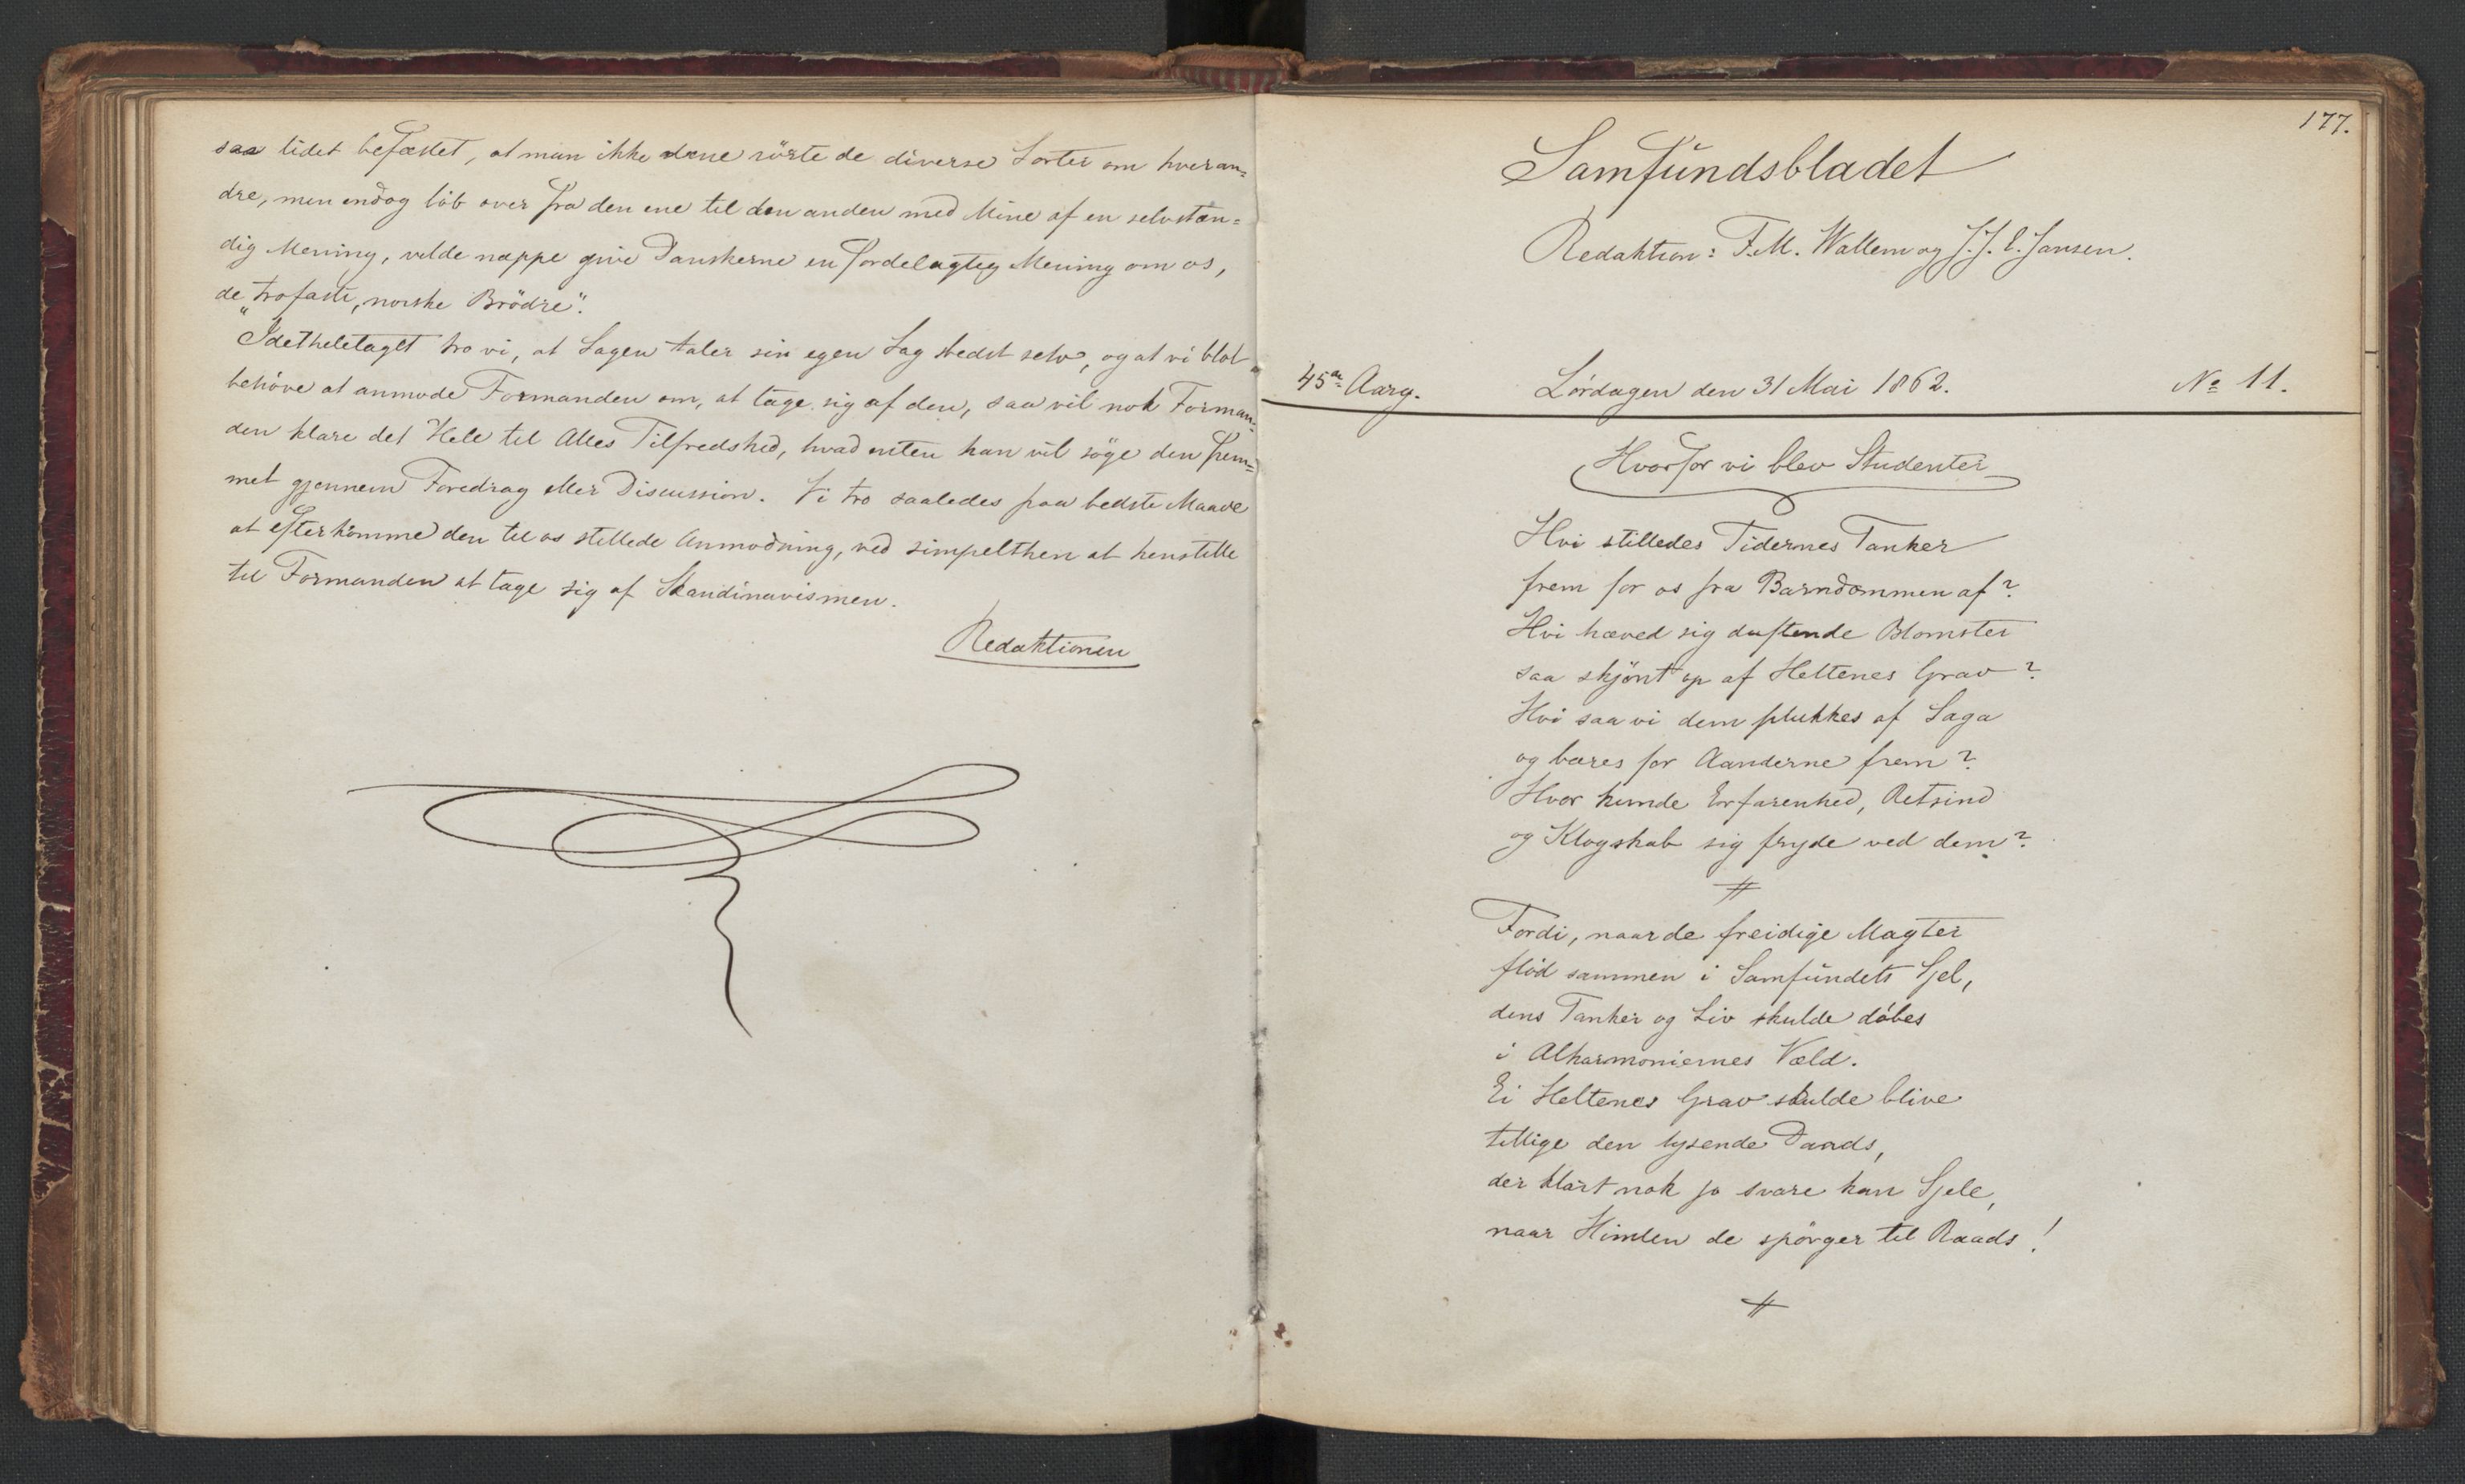 saa lidet befæstet, at man ikke alene rörte de diverse Sorter om hveran=
dre, men endog löb over fra den ene til den anden med Mine af en selvstæn=
dig Mening, vilde neppe give Danskerne en fordelagtig Mening om os,
de „trofaste, norske Brödre”.
Idetheletaget tro vi, at Sagen taler sin egen Sag bedst selv, og at vi blot
behöve at anmode Formanden om, at tage sig af den, saa vil nok Forman=
den klare det Hele til Alles Tilfredshed, hvad enten han vil söge den frem=
met gjennem Foredrag eller Discussion. Vi tro saaledes paa bedste Maade
at efterkomme den til os stillede Anmodning, ved simpelthen at henstille
til Formanden at tage sig af Skandinavismen.
Redaktionen
177.
Samfundsbladet
Redaktion: F.M. Wallem og J.J.E. Jansen.
45de Aarg. Lørdagen den 31 Mai 1862. No 11.
Hvorfor vi blev Studenter
Hvi stilledes Tidernes Tanker
frem for os fra Barndommen af?
Hvi hæved sig duftende Blomster
saa skjönt op af Heltenes Grav?
Hvi saa vi dem plukkes af Saga
og bæres for Aanderne frem?
Hvor kunde Erfarenhed, Retsind
og Klogskab sig fryde ved dem?
Fordi, naar de freidige Magter
flöd sammen i Samfundets Sjel,
dens Tanker og Liv skulde döbes
i Alharmoniernes Væld.
Ei Heltenes Grav skulde blive
tillige den lysende Daads,
der klart nok jo svare kan Sjele,
naar Himlen de spörger til Raads!